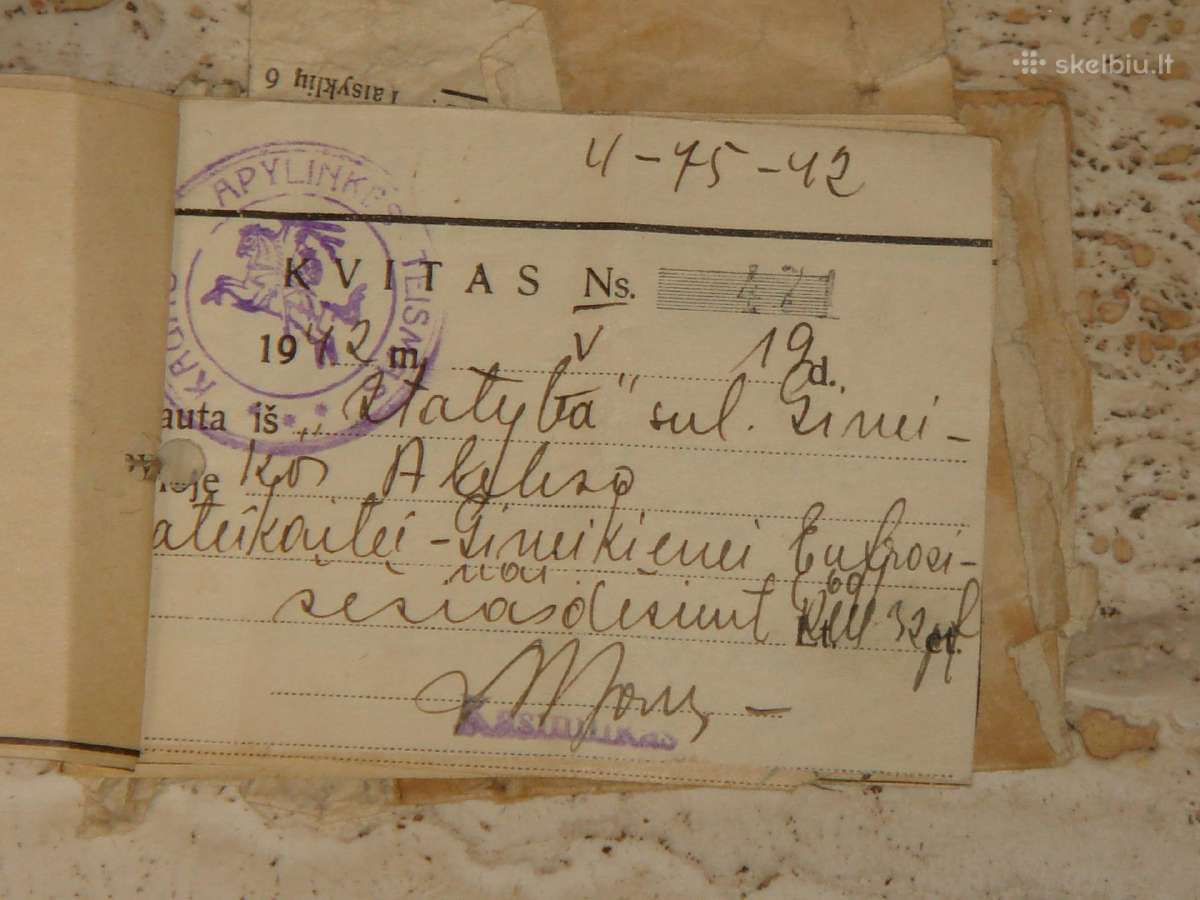 skelbiu.lt
Taisyklių 6
4-75-42
APYLINKĖS TEISMAS
KVITAS Ns. 471
1942 m. V 19 d.,
auta iš „Statyba" sul. Gimei-
kos
ateikaitei-Gimeikienei Eufrosi-
nai
šešiasdešimt (60) Lt. RM 32 ct.
Kasininkas